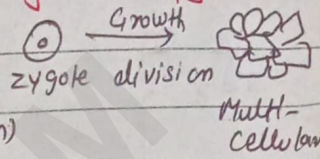 Growth
zygote division
Multi-
Cellular